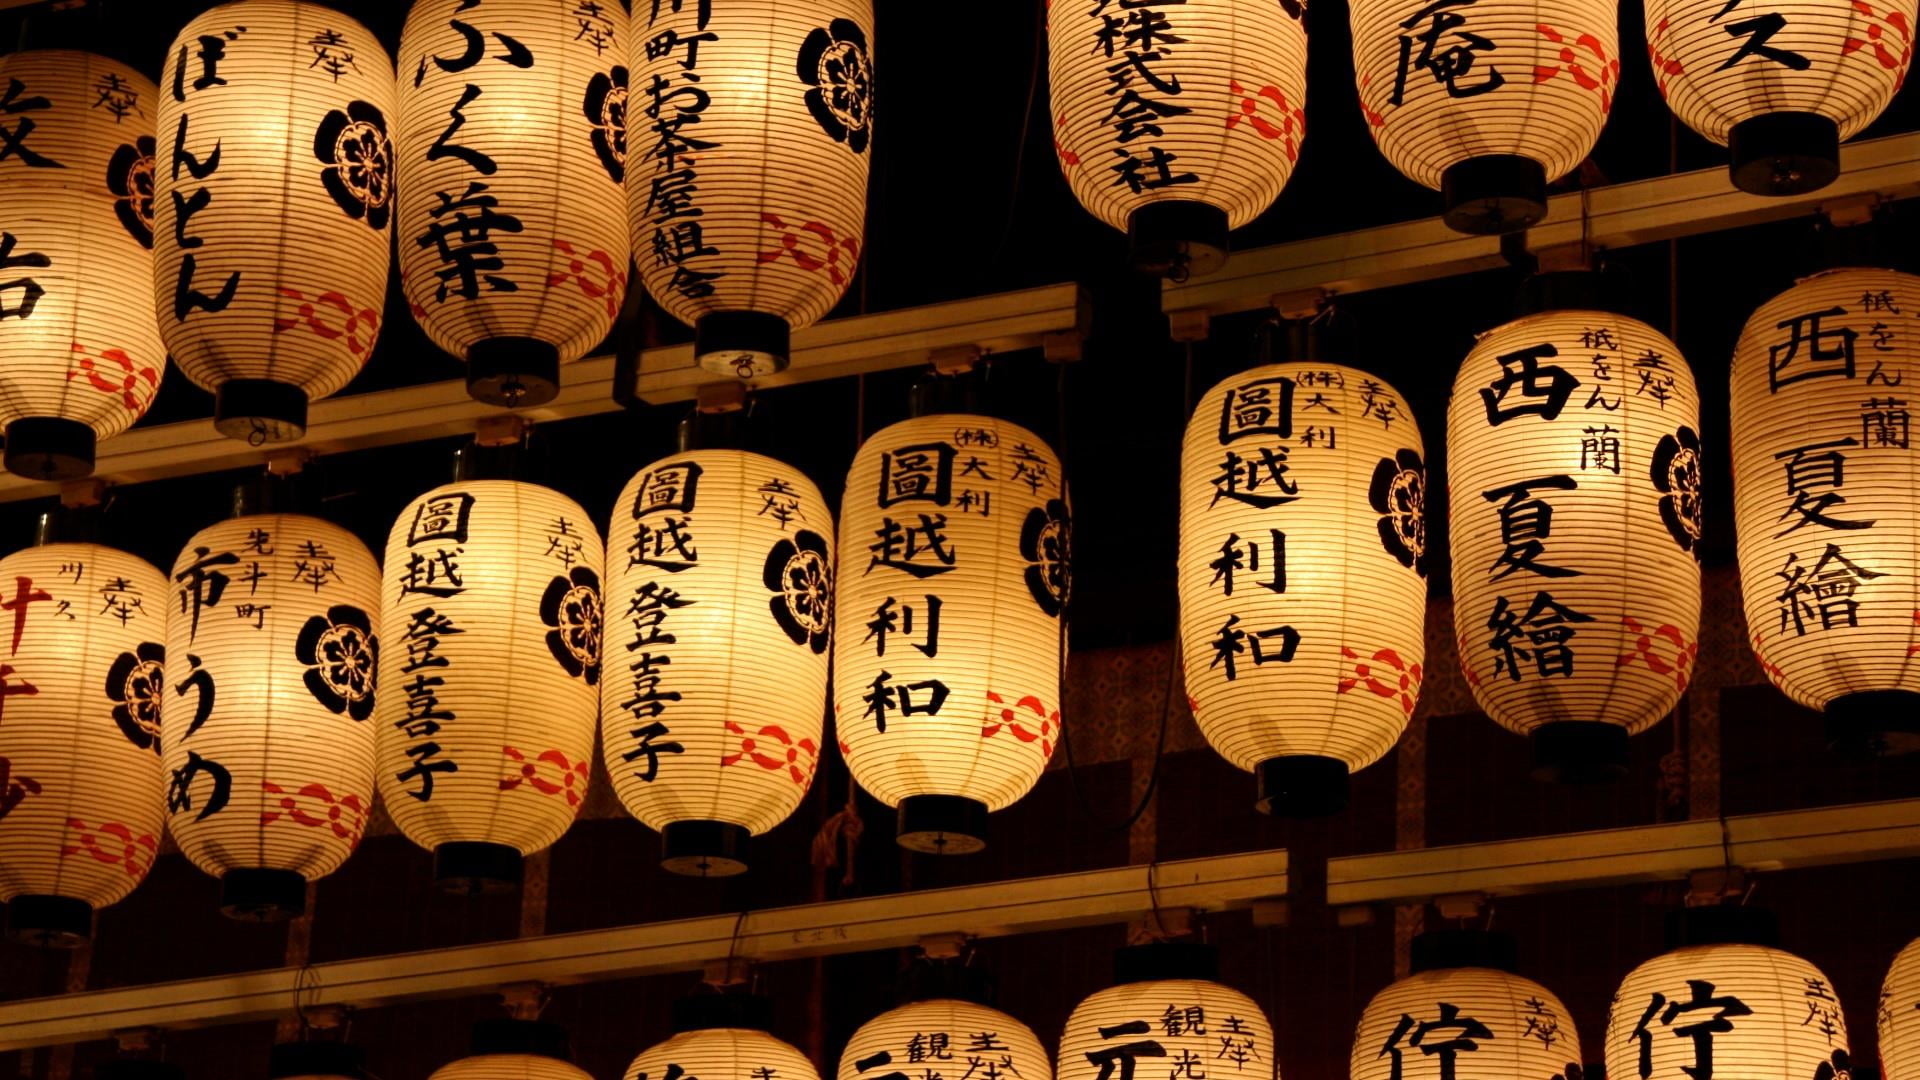 奉
ぼんとん
奉
ふく葉
川町お茶屋組合
株式会社
庵
ス
奉
先斗町
市うめ
奉
圖越
登喜子
奉
圖越
登喜子
奉
㈱大利
圖越利和
奉
㈱大利
圖越利和
奉
祇をん
蘭
西夏繪
祇をん
蘭
西夏繪
奉
川久
奉
奉
観光
奉
観光
元
奉
佇
奉
佇